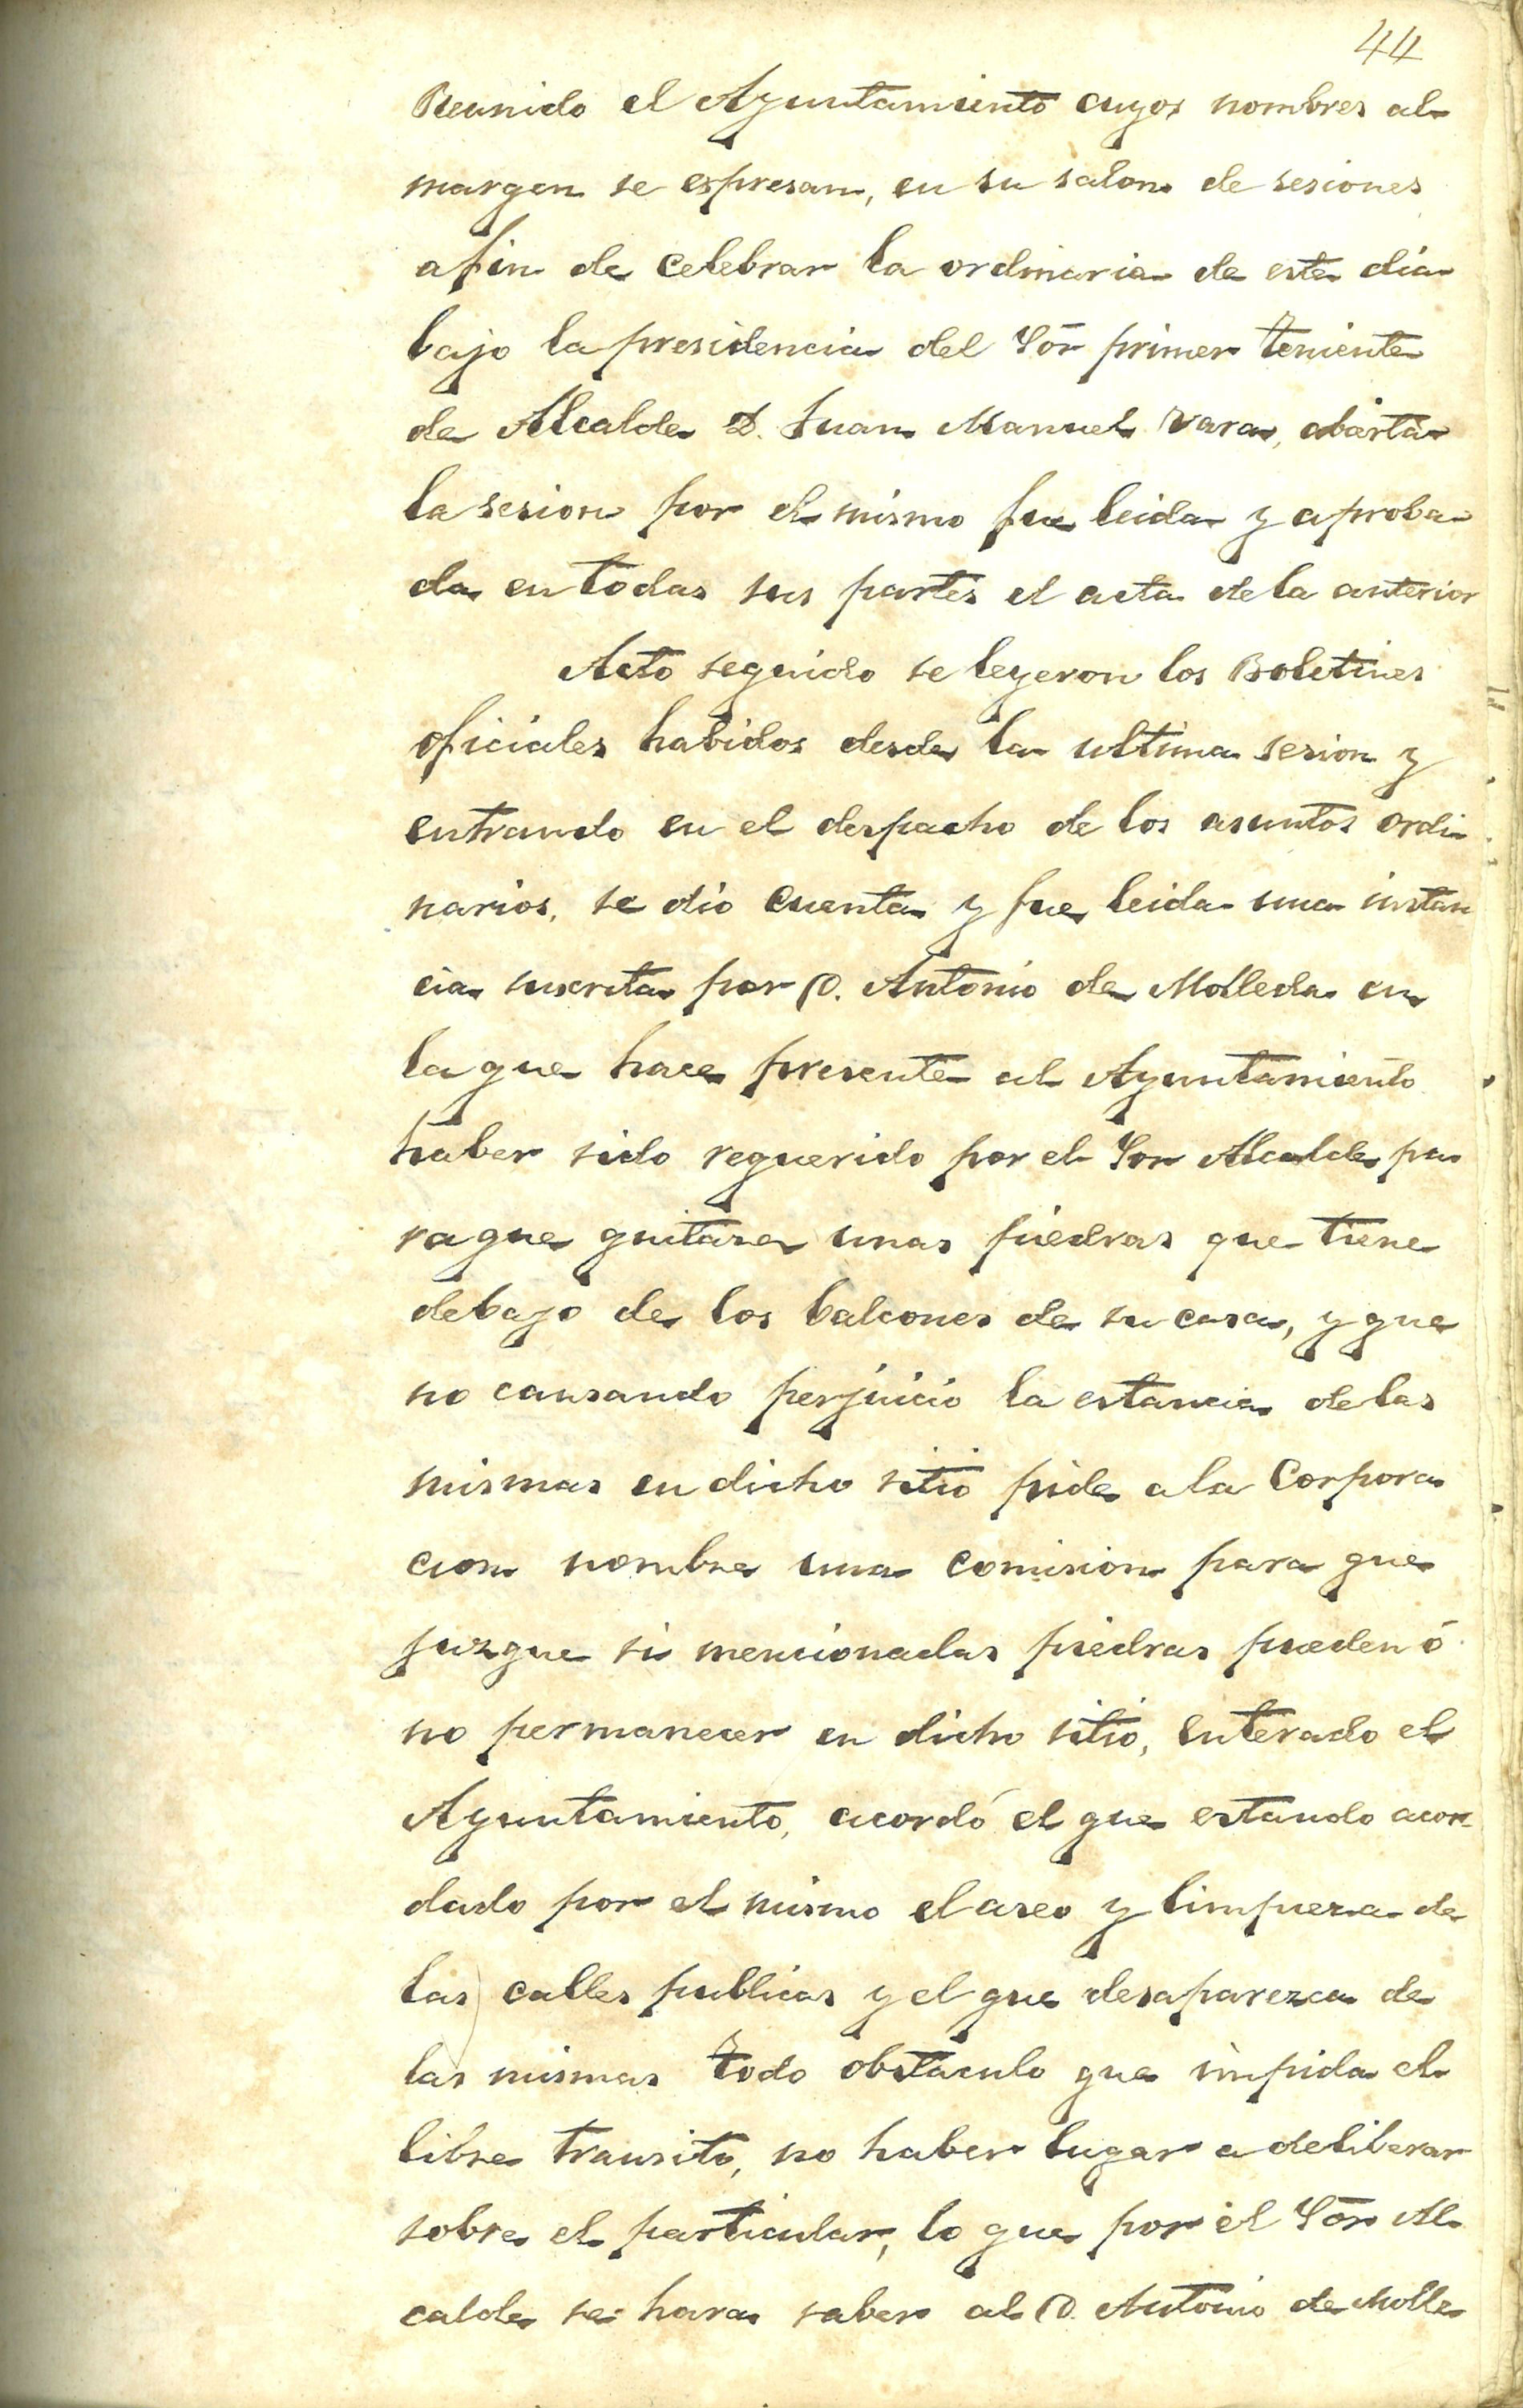 44
Reunido el Ayuntamiento cuyos nombres al
margen se espresan, en su salon de sesiones
afin de celebrar la ordinaria de este dia
bajo la presidencia del Sör primer teniente
de Alcalde D. Juan Manuel Vara, abierta
la sesion por el mismo fue leida y aproba-
da en todas sus partes el acta de la anterior
Acto seguido se leyeron los Boletines
oficiales habidos desde la ultima sesion y
entrando en el despacho de los asuntos ordi-
narios, se dio cuenta y fue leida una instan
cia suscrita por D. Antonio de Molleda en
la que hace presente al Ayuntamiento
haber sido requerido por el Sor Alcalde pa
ra que quitase unas piedras que tiene
debajo de los balcones de su casa, y que
no causando perjuicio la estancia de las
mismas en dicho sitio pide a la Corpora
cion nombre una comision para que
juzgue si mencionadas piedras pueden ó
no permanecer en dicho sitio, enterado el
Ayuntamiento, acordó el que estando acor-
dado por el mismo el aseo y limpieza de
las calles publicas y el que desaparezca de
las mismas todo obstaculo que impida el
libre transito, no haber lugar a deliberar
sobre el particular, lo que por el Sör Al-
calde se hara saber al D. Antonio de Molle-